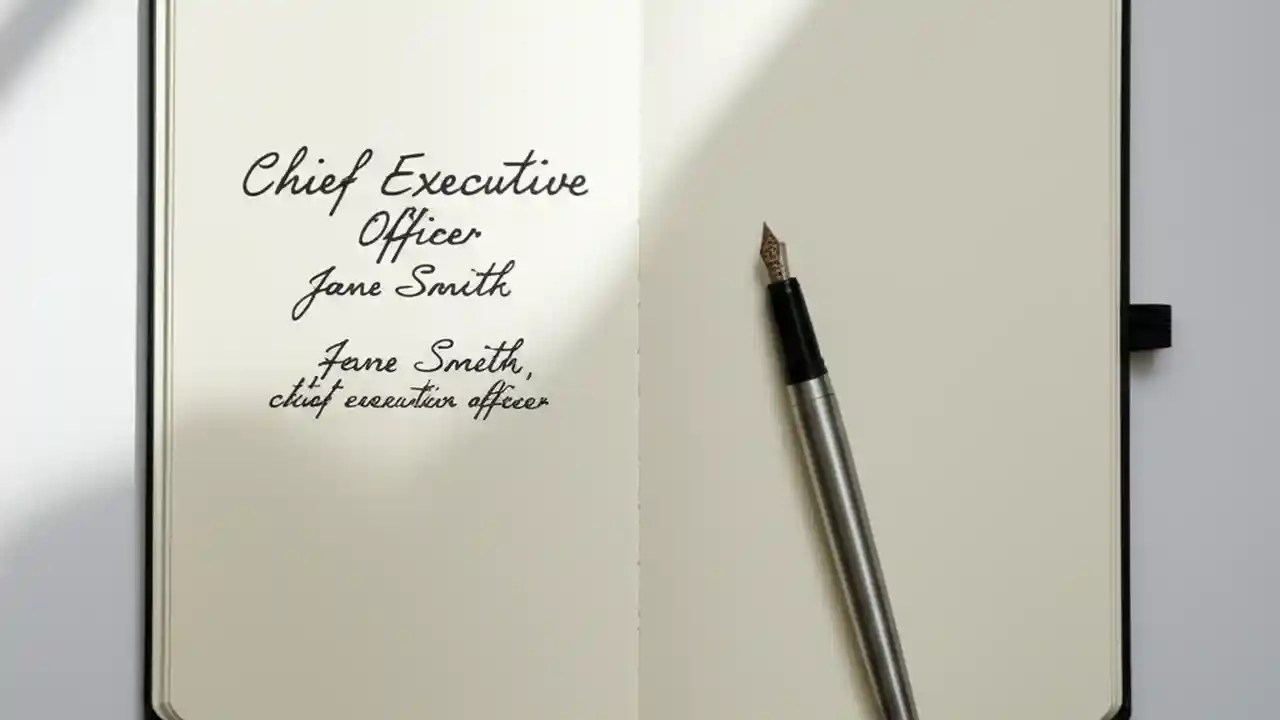 Chief Executive
Officer
Jane Smith
Jane Smith,
chief executive officer